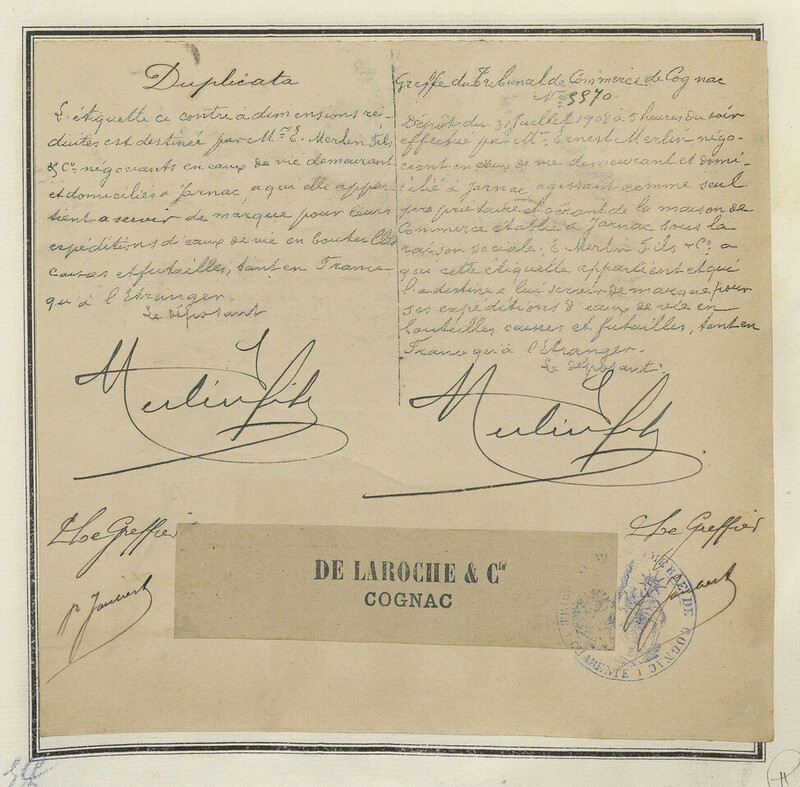 Duplicata
L'étiquette ce contre à dimensions ré-
duites est destinée par Mr E. Merlin Fils
& Co négociants en eaux de vie demeurant
et domiciliés à Jarnac, a qui elle appar-
tient a servir de marque pour leurs
expéditions d'eaux de vie en bouteilles
caisses et futailles, tant en France
qu'à l'Etranger.
Le déposant
Merlin fils
Greffe du Tribunal de Commerce de Cognac
No 5570
Dépôt du 31 Juillet 1908 à 5 heures du soir
effectué par Mr Ernest Merlin négo-
ciant en eaux de vie demeurant et domi-
cilié à Jarnac, agissant comme seul
propriétaire et gérant de la maison de
Commerce établie à Jarnac sous la
raison sociale: E. Merlin Fils & Co. a
qui cette étiquette appartient et qui
l'a destine a lui servir de marque pour
ses expéditions d'eaux de vie en
bouteilles caisses et futailles, tant en
France qu'à l'Etranger.
Le déposant:
Merlin fils
Le Greffier
Le Greffier
DE LAROCHE & Cie
COGNAC
DE COGNAC
CHARENTE